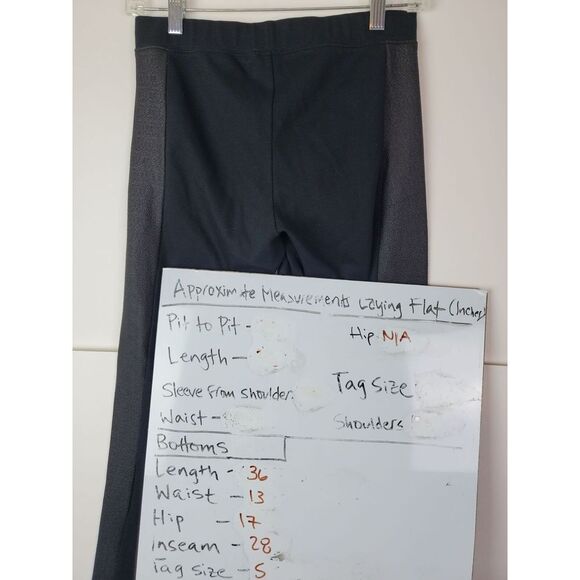 Approximate Measurements Laying Flat (Inches)
Pit to Pit -
Hip N/A
Length -
Sleeve from shoulder.
Tag Size
Waist -
Shoulders
Bottoms
Length - 36
Waist - 13
Hip - 17
inseam - 28
Tag size - S